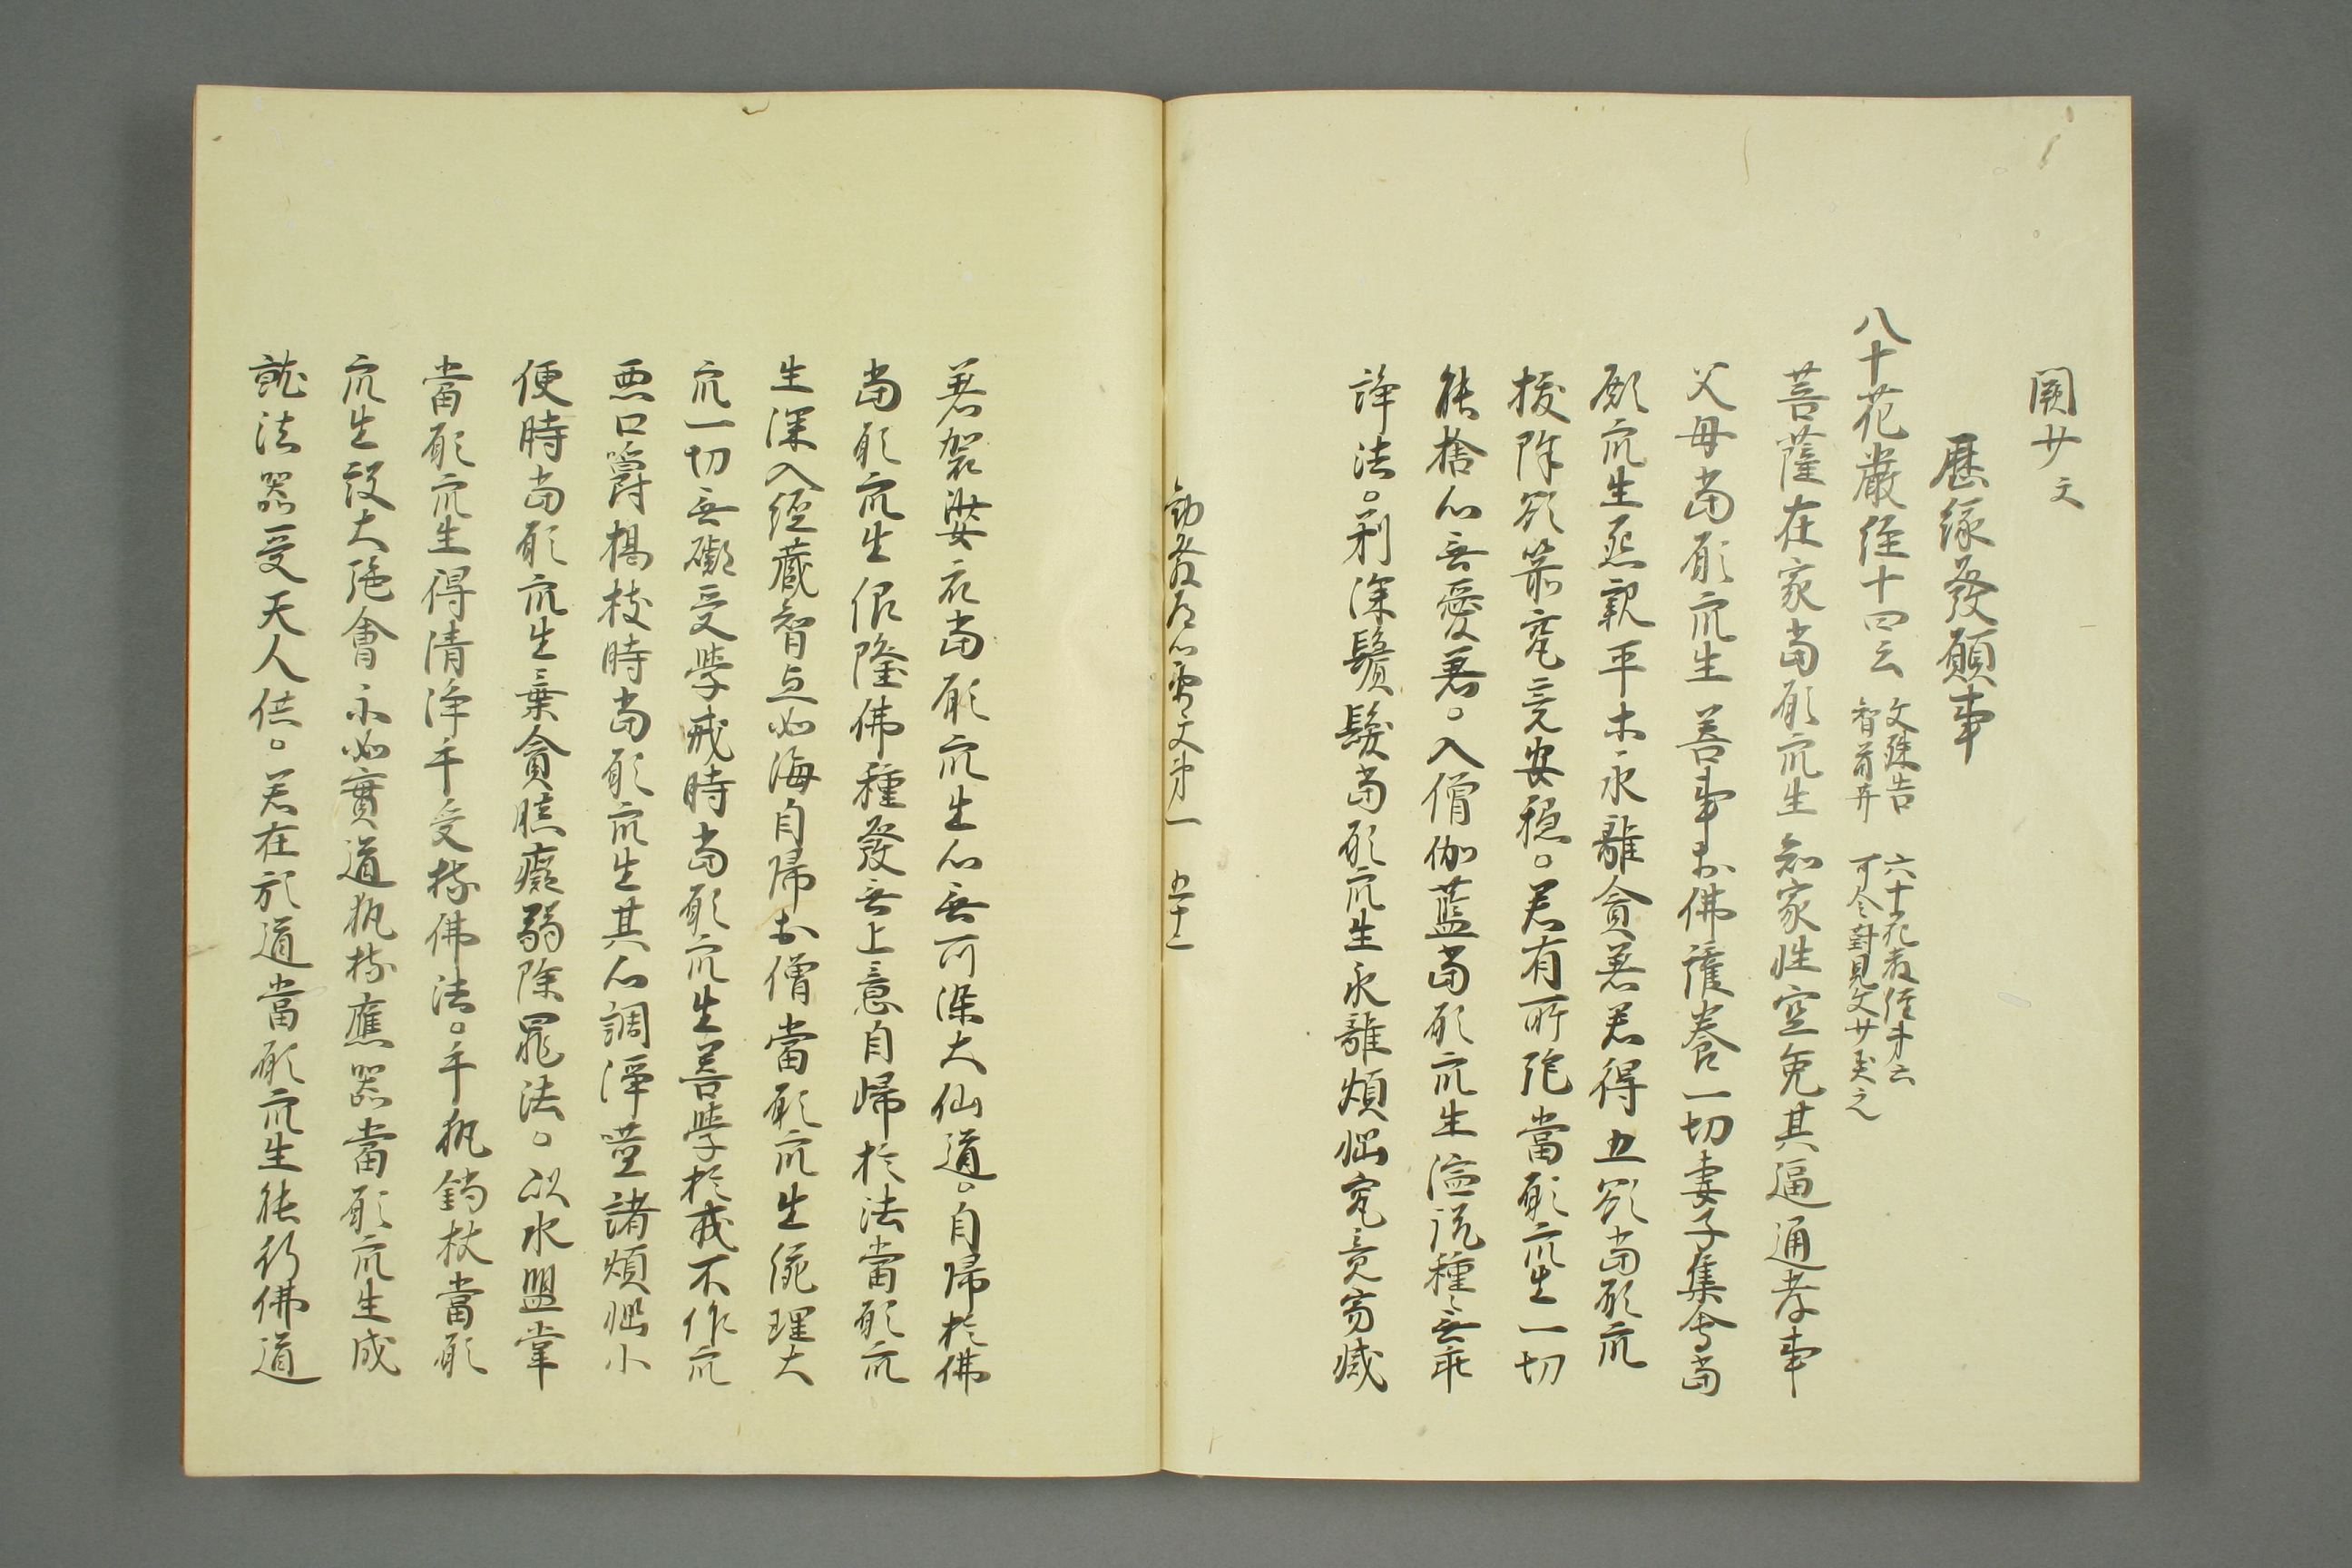 闕廿文
歷緣發願事
八十花嚴經十四云 文殊告智首廾 六十花嚴經第六云可令對見文廿異之
菩薩在家當願衆生知家性空免其逼逼孝事
父母當願衆生善事於佛護養一切妻子集會當
願衆生怨親平木永離貪著若得五欲當願衆
拔除欲箭究竟安穩。若有所施當願衆生一切
能捨心無愛著。入僧伽藍當願衆生演說種々無乖
諍法。剃除鬚髮當願衆生永離煩惱究竟寂滅
勸發菩提心要文第一 五十一
著袈裟衣當願衆生心無所染大仙道。自歸於佛
當願衆生紹隆佛種發無上意自歸於法當願衆
生深入經藏智惠如海自歸於僧當願衆生統理大
衆一切無礙受學戒時當願衆生善學於戒不作衆
惡口嚼楊枝時當願衆生其心調淨噬諸煩惱小
便時當願衆生棄貪瞋癡蠲除罪法。以水盥掌
當願衆生得清淨手受持佛法。手執錫杖當願
衆生設大施會示如實道執持應器當願衆生成
就法器受天人供。若在於道當願衆生能行佛道